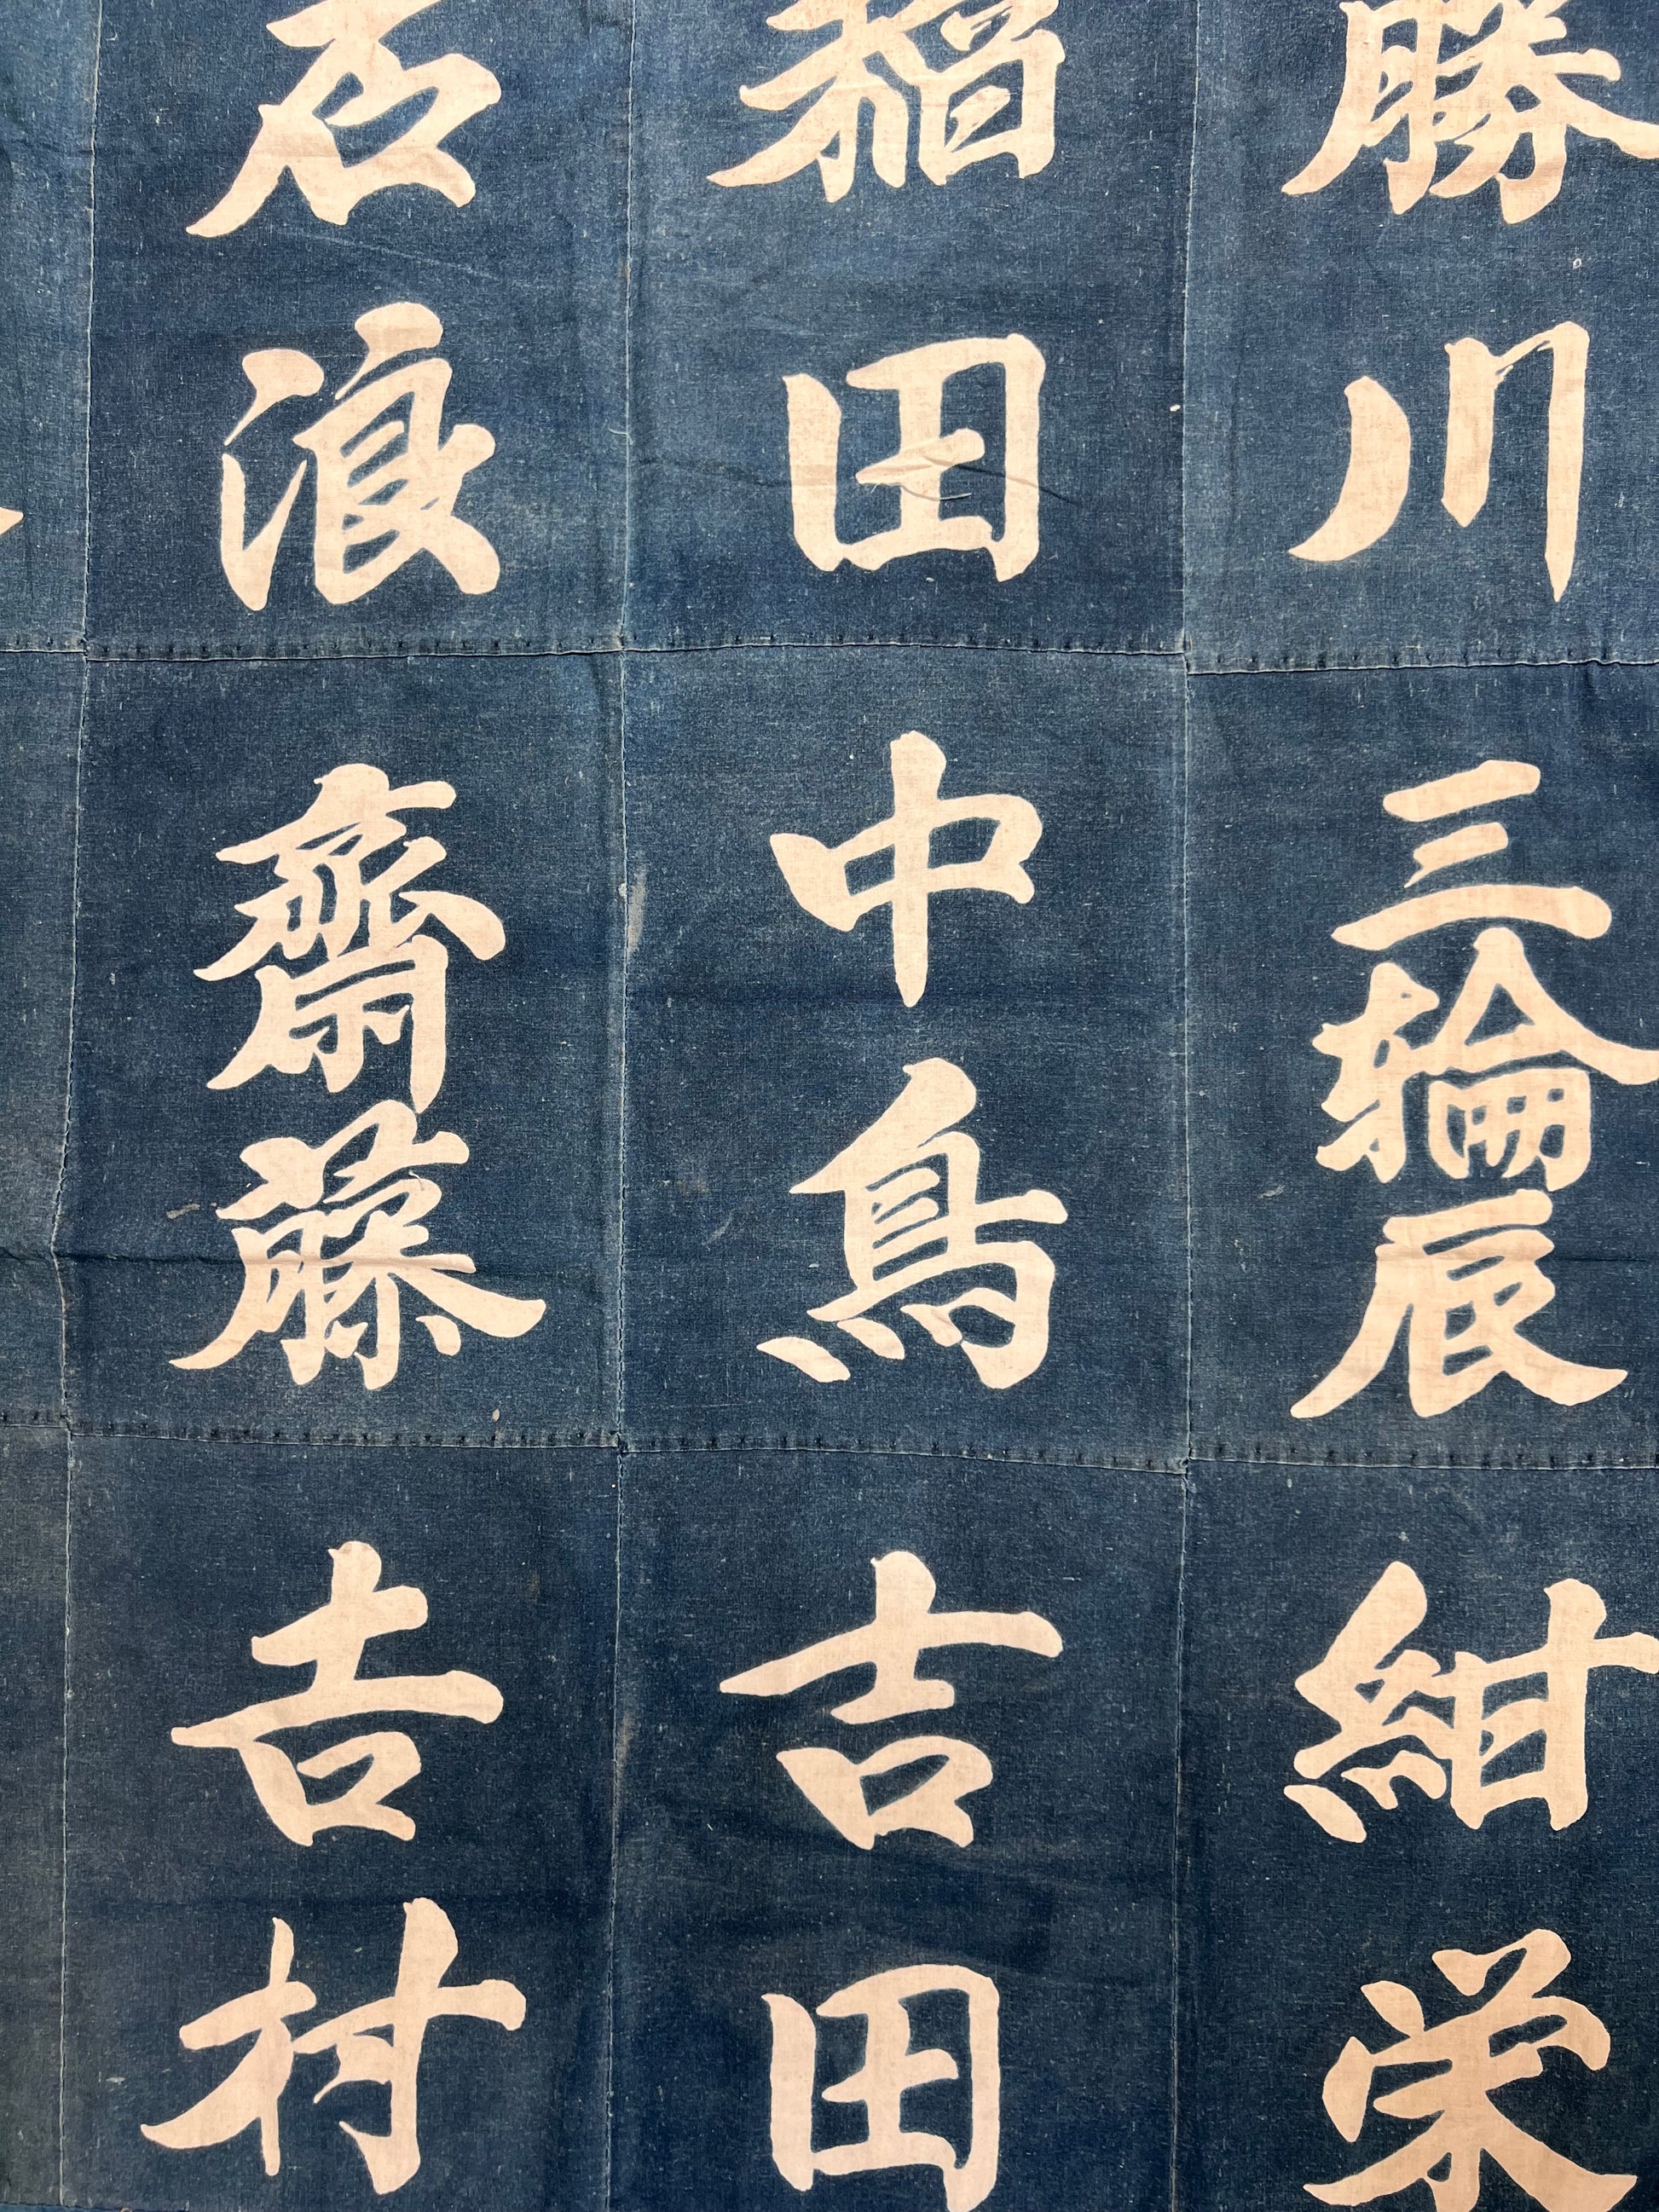 勝川
三輪辰
紺栄
稲田
中鳥
吉田
石浪
齋藤
吉村